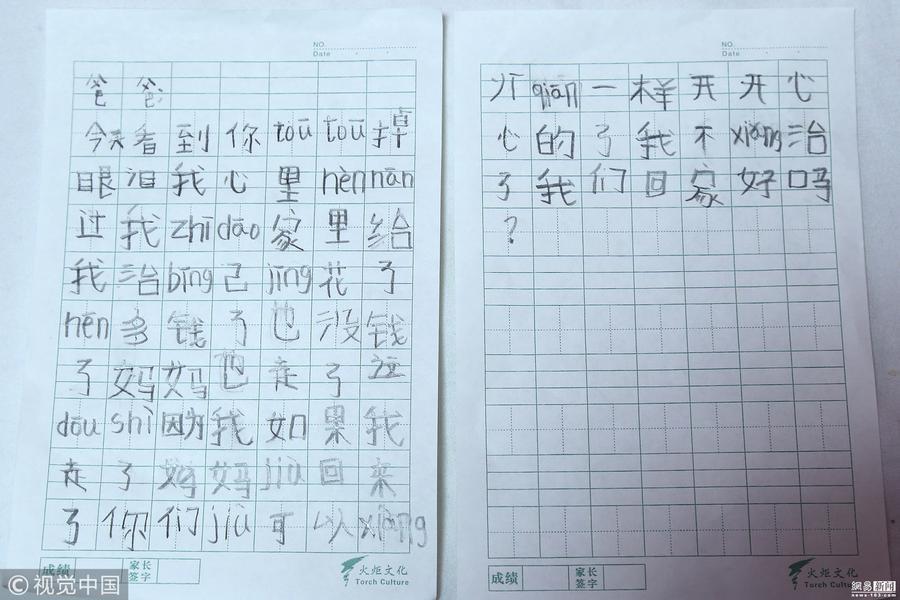 NO.
Date
爸爸
今天看到你tōu tōu掉
眼泪我心里hèn nān
过我zhī dāo家里给
我治bīng己jīng花了
hēn多钱了也没钱
了妈妈也走了这
dōu shì因为我如果我
走了妈妈jiù回来
了你们jiù可以xiàng
成绩
家长签字
火炬文化
Torch Culture
NO.
Date
以qiān一样开开心
心的了我不xiǎng治
了我们回家好吗
?
成绩
家长签字
火炬文化
Torch Culture
©视觉中国
網易新闻
news·163.com